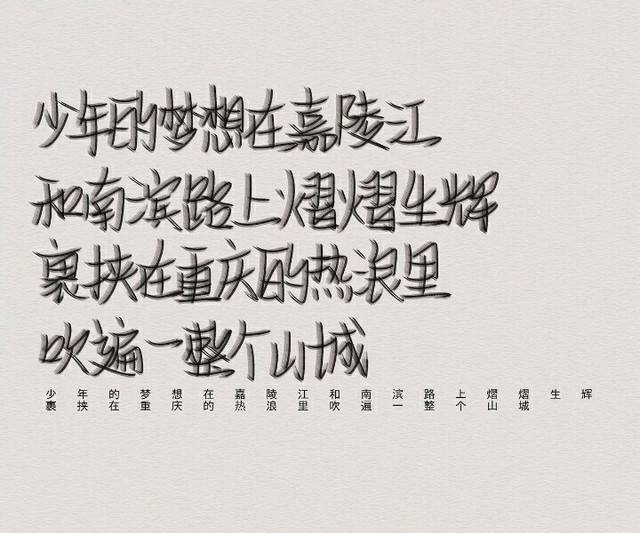 少年的梦想在嘉陵江
和南滨路上熠熠生辉
裹挟在重庆的热浪里
吹遍一整个山城
少年的梦想在嘉陵江和南滨路上熠熠生辉
裹挟在重庆的热浪里吹遍一整个山城